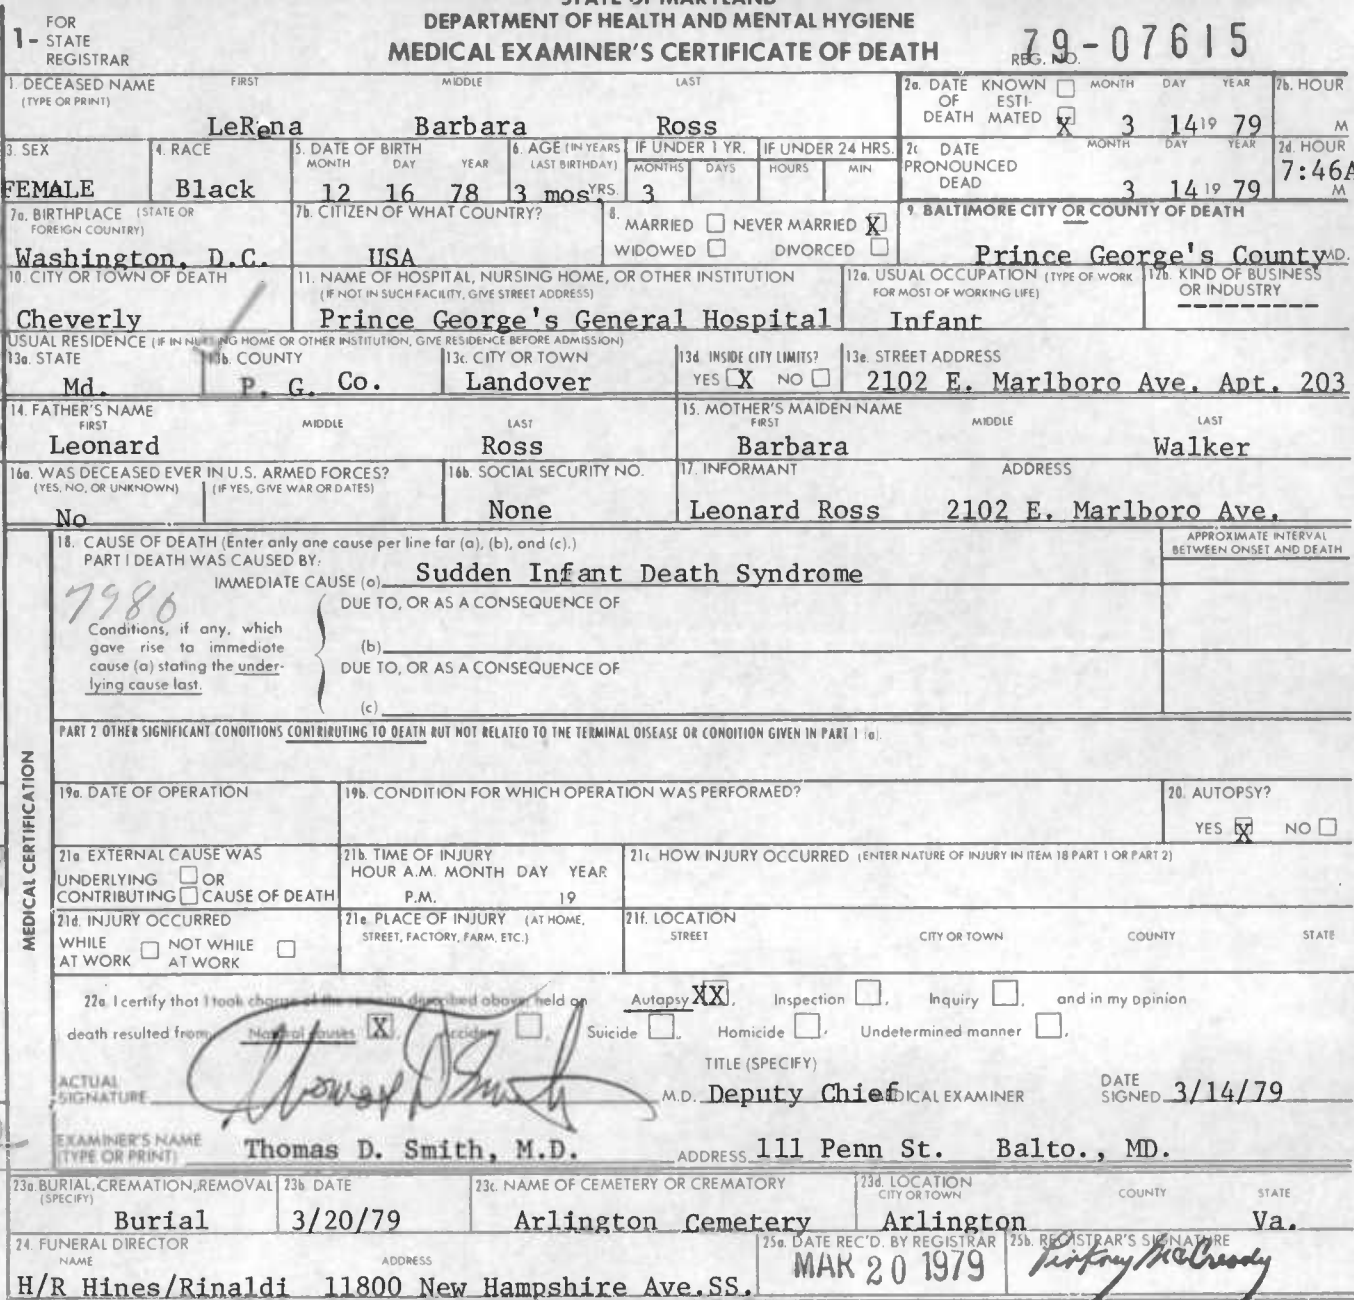 STATE OF MARYLAND
DEPARTMENT OF HEALTH AND MENTAL HYGIENE
MEDICAL EXAMINER'S CERTIFICATE OF DEATH
1- FOR STATE REGISTRAR
REG. NO. 79-07615
1. DECEASED NAME (TYPE OR PRINT) FIRST MIDDLE LAST
LeRena Barbara Ross
2a. DATE OF DEATH KNOWN ESTIMATED X MONTH DAY YEAR
3 14 19 79
2b. HOUR M
3. SEX
FEMALE
4. RACE
Black
5. DATE OF BIRTH MONTH DAY YEAR
12 16 78
6. AGE (IN YEARS LAST BIRTHDAY)
3 mos YRS.
IF UNDER 1 YR. MONTHS DAYS
3
IF UNDER 24 HRS. HOURS MIN
2c DATE PRONOUNCED DEAD MONTH DAY YEAR
3 14 19 79
2d. HOUR
7:46A M
7a. BIRTHPLACE (STATE OR FOREIGN COUNTRY)
Washington, D.C.
7b. CITIZEN OF WHAT COUNTRY?
USA
8. MARRIED NEVER MARRIED X
WIDOWED DIVORCED
9. BALTIMORE CITY OR COUNTY OF DEATH
Prince George's County MD.
10. CITY OR TOWN OF DEATH
Cheverly
11. NAME OF HOSPITAL, NURSING HOME, OR OTHER INSTITUTION
(IF NOT IN SUCH FACILITY, GIVE STREET ADDRESS)
Prince George's General Hospital
12a. USUAL OCCUPATION (TYPE OF WORK FOR MOST OF WORKING LIFE)
Infant
12b. KIND OF BUSINESS OR INDUSTRY
----------
USUAL RESIDENCE (IF IN NURSING HOME OR OTHER INSTITUTION, GIVE RESIDENCE BEFORE ADMISSION)
13a. STATE
Md.
13b. COUNTY
P. G. Co.
13c. CITY OR TOWN
Landover
13d INSIDE CITY LIMITS?
YES X NO
13e. STREET ADDRESS
2102 E. Marlboro Ave. Apt. 203
14. FATHER'S NAME FIRST MIDDLE LAST
Leonard Ross
15. MOTHER'S MAIDEN NAME FIRST MIDDLE LAST
Barbara Walker
16a. WAS DECEASED EVER IN U.S. ARMED FORCES?
(YES, NO, OR UNKNOWN) (IF YES, GIVE WAR OR DATES)
No
16b. SOCIAL SECURITY NO.
None
17. INFORMANT ADDRESS
Leonard Ross 2102 E. Marlboro Ave.
MEDICAL CERTIFICATION
18. CAUSE OF DEATH (Enter only one cause per line for (a), (b), and (c).)
APPROXIMATE INTERVAL BETWEEN ONSET AND DEATH
PART I DEATH WAS CAUSED BY:
IMMEDIATE CAUSE (a) Sudden Infant Death Syndrome
7980
DUE TO, OR AS A CONSEQUENCE OF
Conditions, if any, which gave rise to immediate cause (a) stating the underlying cause last.
(b)
DUE TO, OR AS A CONSEQUENCE OF
(c)
PART 2 OTHER SIGNIFICANT CONDITIONS CONTRIBUTING TO DEATH BUT NOT RELATED TO THE TERMINAL DISEASE OR CONDITION GIVEN IN PART 1 (a).
19a. DATE OF OPERATION
19b. CONDITION FOR WHICH OPERATION WAS PERFORMED?
20. AUTOPSY?
YES X NO
21a EXTERNAL CAUSE WAS
UNDERLYING OR
CONTRIBUTING CAUSE OF DEATH
21b. TIME OF INJURY
HOUR A.M. MONTH DAY YEAR
P.M. 19
21c HOW INJURY OCCURRED (ENTER NATURE OF INJURY IN ITEM 18 PART 1 OR PART 2)
21d. INJURY OCCURRED
WHILE AT WORK NOT WHILE AT WORK
21e PLACE OF INJURY (AT HOME, STREET, FACTORY, FARM, ETC.)
21f. LOCATION
STREET CITY OR TOWN COUNTY STATE
22a I certify that I took charge of the remains described above, held an Autopsy XX, Inspection , Inquiry , and in my opinion
death resulted from: Natural causes X, Accident , Suicide , Homicide , Undetermined manner ,
ACTUAL SIGNATURE Thomas D Smith M.D.
TITLE (SPECIFY)
Deputy Chief MEDICAL EXAMINER
DATE SIGNED 3/14/79
EXAMINER'S NAME (TYPE OR PRINT) Thomas D. Smith, M.D.
ADDRESS 111 Penn St. Balto., MD.
23a. BURIAL, CREMATION, REMOVAL (SPECIFY)
Burial
23b DATE
3/20/79
23c. NAME OF CEMETERY OR CREMATORY
Arlington Cemetery
23d. LOCATION CITY OR TOWN COUNTY STATE
Arlington Va.
24. FUNERAL DIRECTOR
NAME ADDRESS
H/R Hines/Rinaldi 11800 New Hampshire Ave.SS.
25a. DATE REC'D. BY REGISTRAR
MAR 20 1979
25b. REGISTRAR'S SIGNATURE
McCready